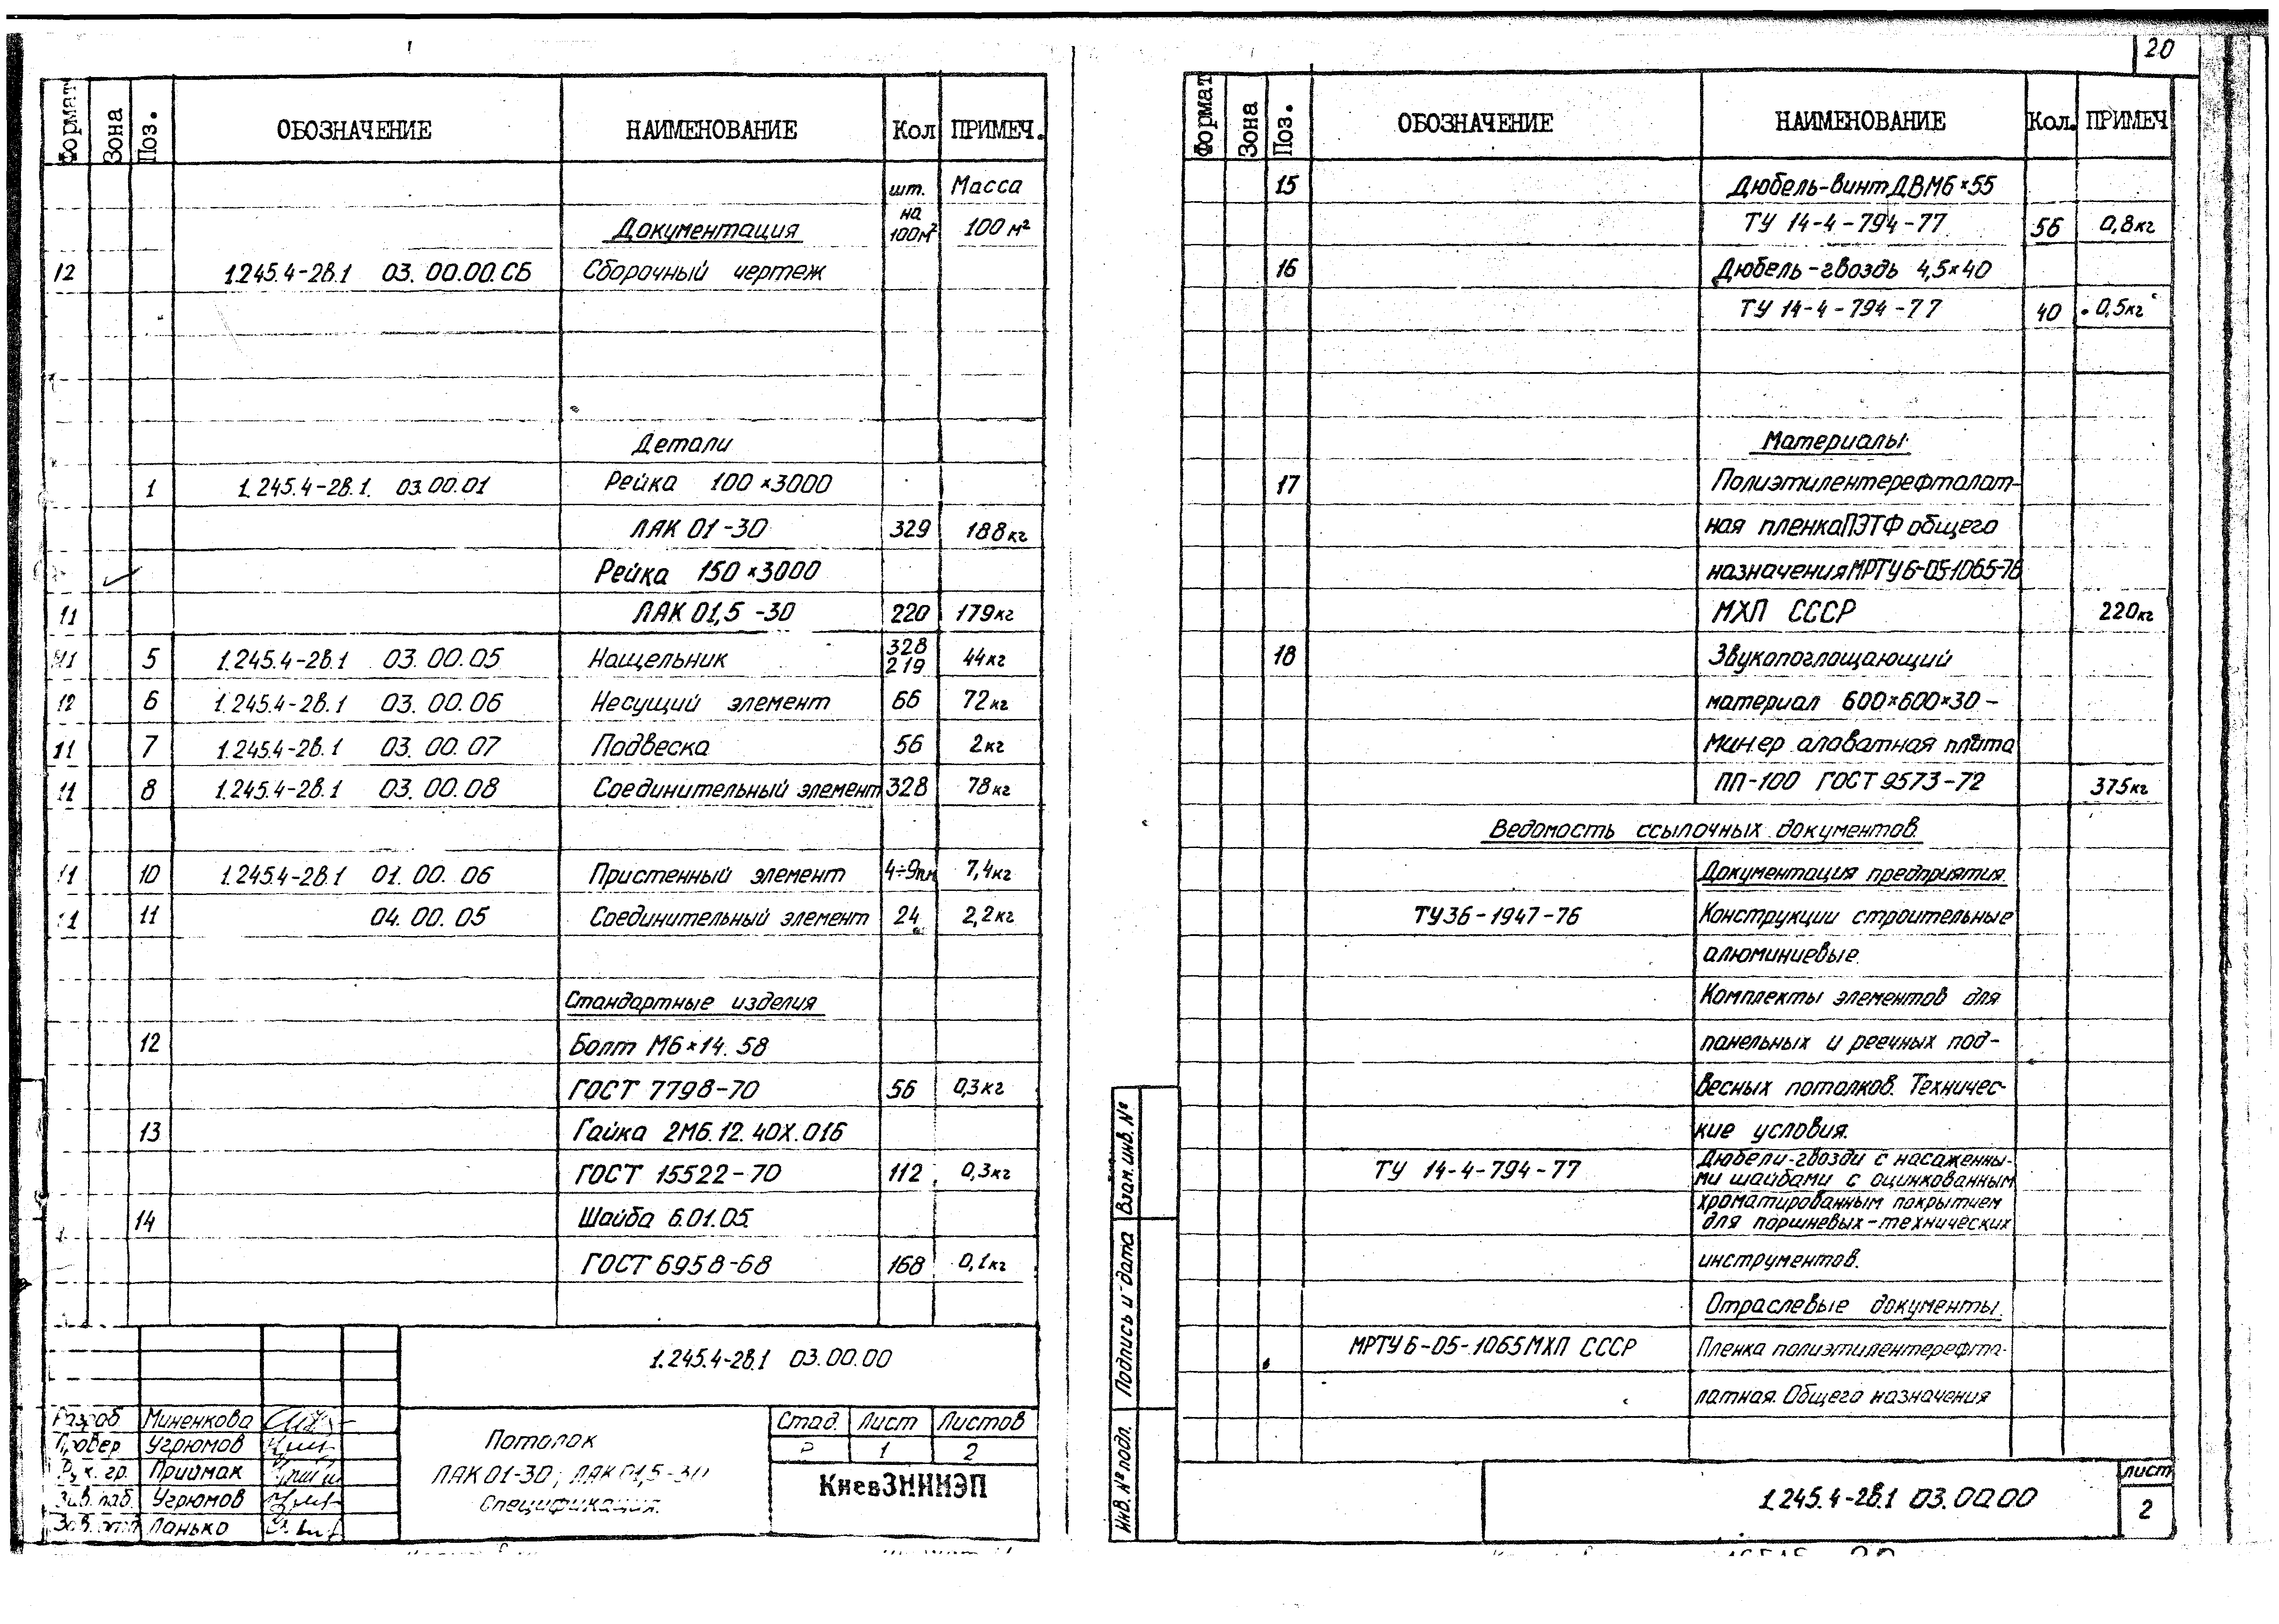 Формат Зона Поз. ОБОЗНАЧЕНИЕ НАИМЕНОВАНИЕ Кол ПРИМЕЧ.
шт. Масса
Документация на 100м² 100 м²
12 1.245.4-2в.1 03.00.00.СБ Сборочный чертеж
Детали
1 1.245.4-2в.1. 03.00.01 Рейка 100×3000
ЛАК 01-30 329 188кг
Рейка 150×3000
11 ЛАК 01,5-30 220 179кг
11 5 1.245.4-2в.1 03.00.05 Нащельник 328 219 44кг
12 6 1.245.4-2в.1 03.00.06 Несущий элемент 66 72кг
11 7 1.245.4-2в.1 03.00.07 Подвеска 56 2кг
11 8 1.245.4-2в.1 03.00.08 Соединительный элемент 328 78кг
11 10 1.245.4-2в.1 01.00.06 Пристенный элемент 4÷9пм 7,4кг
11 11 04.00.05 Соединительный элемент 24 2,2кг
Стандартные изделия
12 Болт М6×14.58
ГОСТ 7798-70 56 0,3кг
13 Гайка 2М6.12.40Х.016
ГОСТ 15522-70 112 0,3кг
14 Шайба 6.01.05.
ГОСТ 6958-68 168 0,1кг
1.245.4-2в.1 03.00.00
Разраб Миненкова
Провер Угрюмов
Рук. гр. Приймак
Зав. лаб. Угрюмов
Зав. отд Ланько
Потолок
ЛАК 01-30; ЛАК 01,5-30
Спецификация.
Стад. Лист Листов
Р 1 2
КиевЗНИИЭП
20
Формат Зона Поз. ОБОЗНАЧЕНИЕ НАИМЕНОВАНИЕ Кол. ПРИМЕЧ
15 Дюбель-винт ДВМ6×55
ТУ 14-4-794-77 56 0,8кг
16 Дюбель-гвоздь 4,5×40
ТУ 14-4-794-77 40 0,5кг
Материалы
17 Полиэтилентерефталат-
ная пленка ПЭТФ общего
назначения МРТУ 6-05-1065-76
МХП СССР 220кг
18 Звукопоглощающий
материал 600×600×30-
Минераловатная плита
ПП-100 ГОСТ 9573-72 375кг
Ведомость ссылочных документов.
Документация предприятия.
ТУ36-1947-76 Конструкции строительные
алюминиевые.
Комплекты элементов для
панельных и реечных под-
весных потолков. Техничес-
кие условия.
ТУ 14-4-794-77 Дюбели-гвозди с насаженны-
ми шайбами с оцинкованным
хроматированным покрытием
для поршневых-технических
инструментов.
Отраслевые документы.
МРТУ 6-05-1065 МХП СССР Пленка полиэтилентерефта-
латная. Общего назначения
Инв. № подл. Подпись и дата Взам. инв. №
1.245.4-2в.1 03.00.00
лист
2